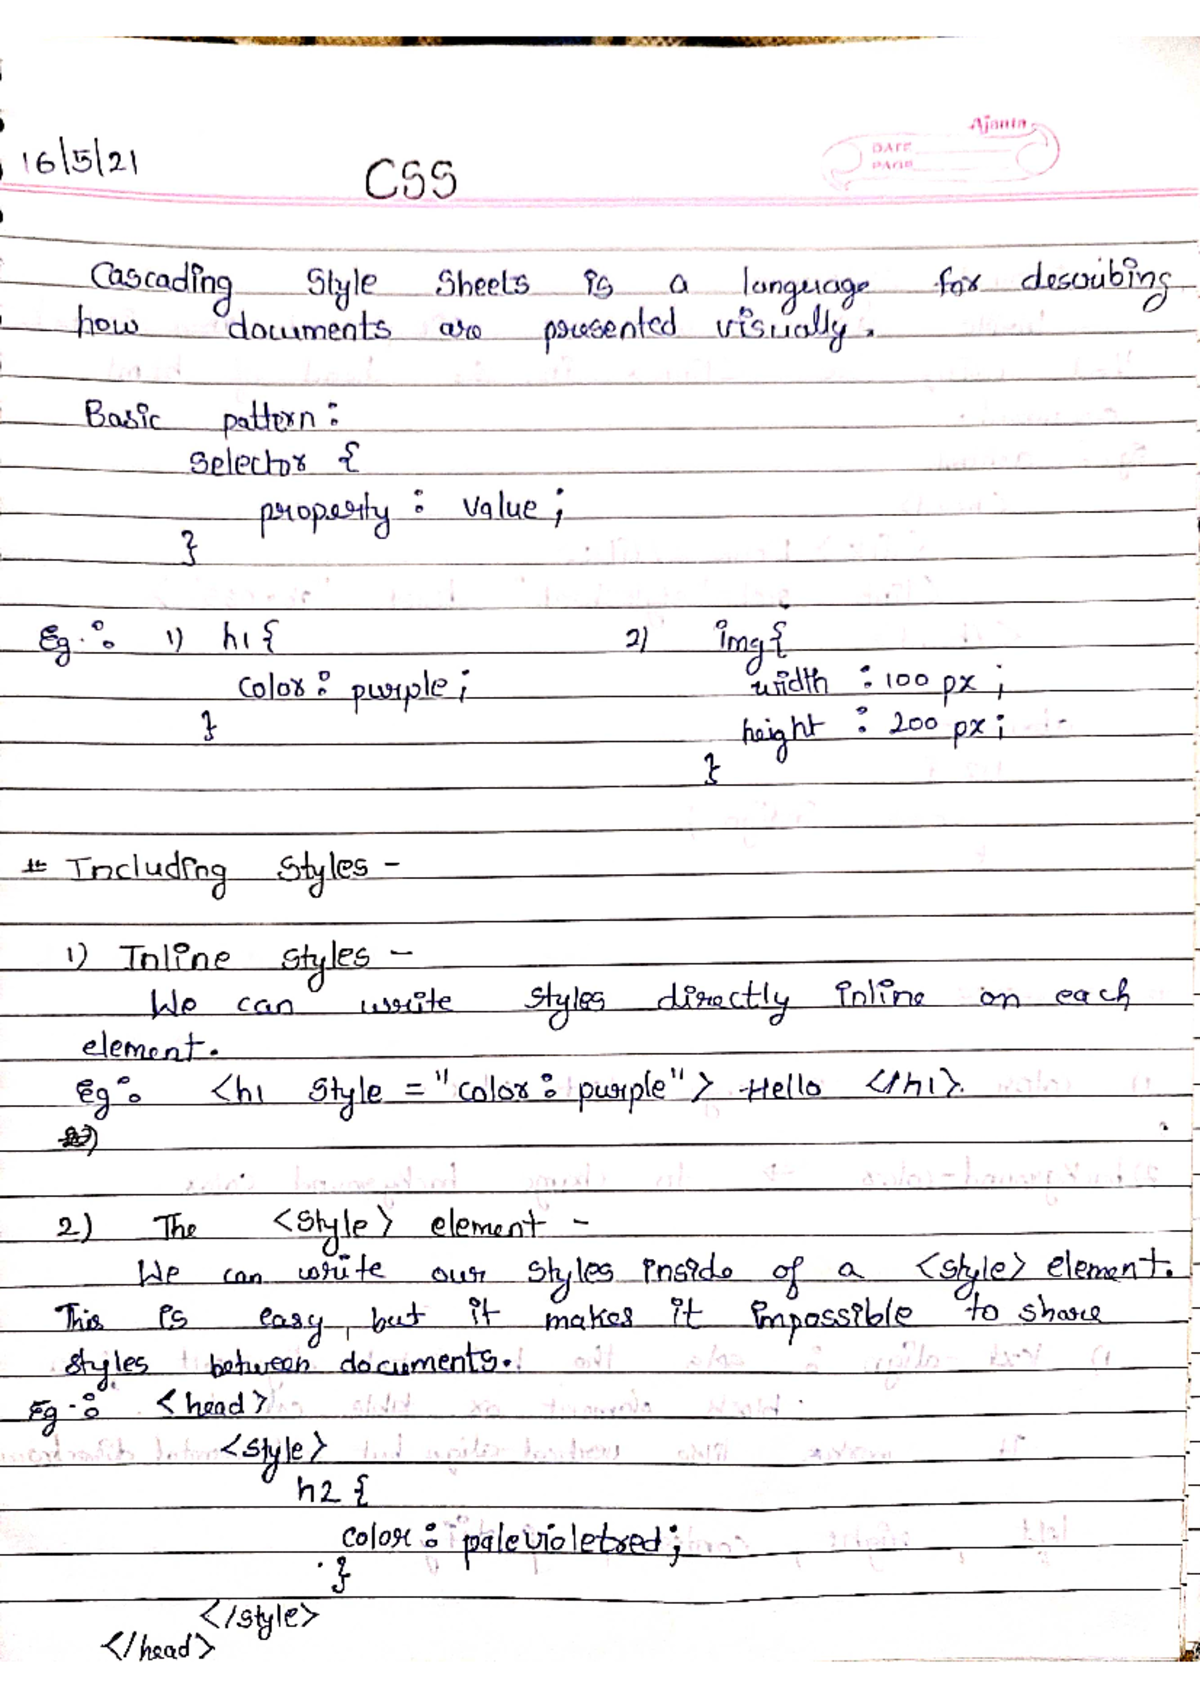 Ajanta
16/5/21
CSS
DATE
PAGE
Cascading Style Sheets is a language for describing
how documents are presented visually.
Basic pattern :
Selector {
property : value ;
}
Eg. : 1) h1 {
color : purple ;
}
2) img {
width : 100 px ;
height : 200 px ;
}
# Including Styles -
1) Inline styles -
We can write styles directly inline on each
element.
Eg : <h1 style = "color : purple" > Hello </h1>.
2) The <style> element -
We can write our styles inside of a <style> element.
This is easy, but it makes it impossible to share
styles between documents.
Eg. : <head>
<style>
h2 {
color : palevioletred ;
}
</style>
</head>